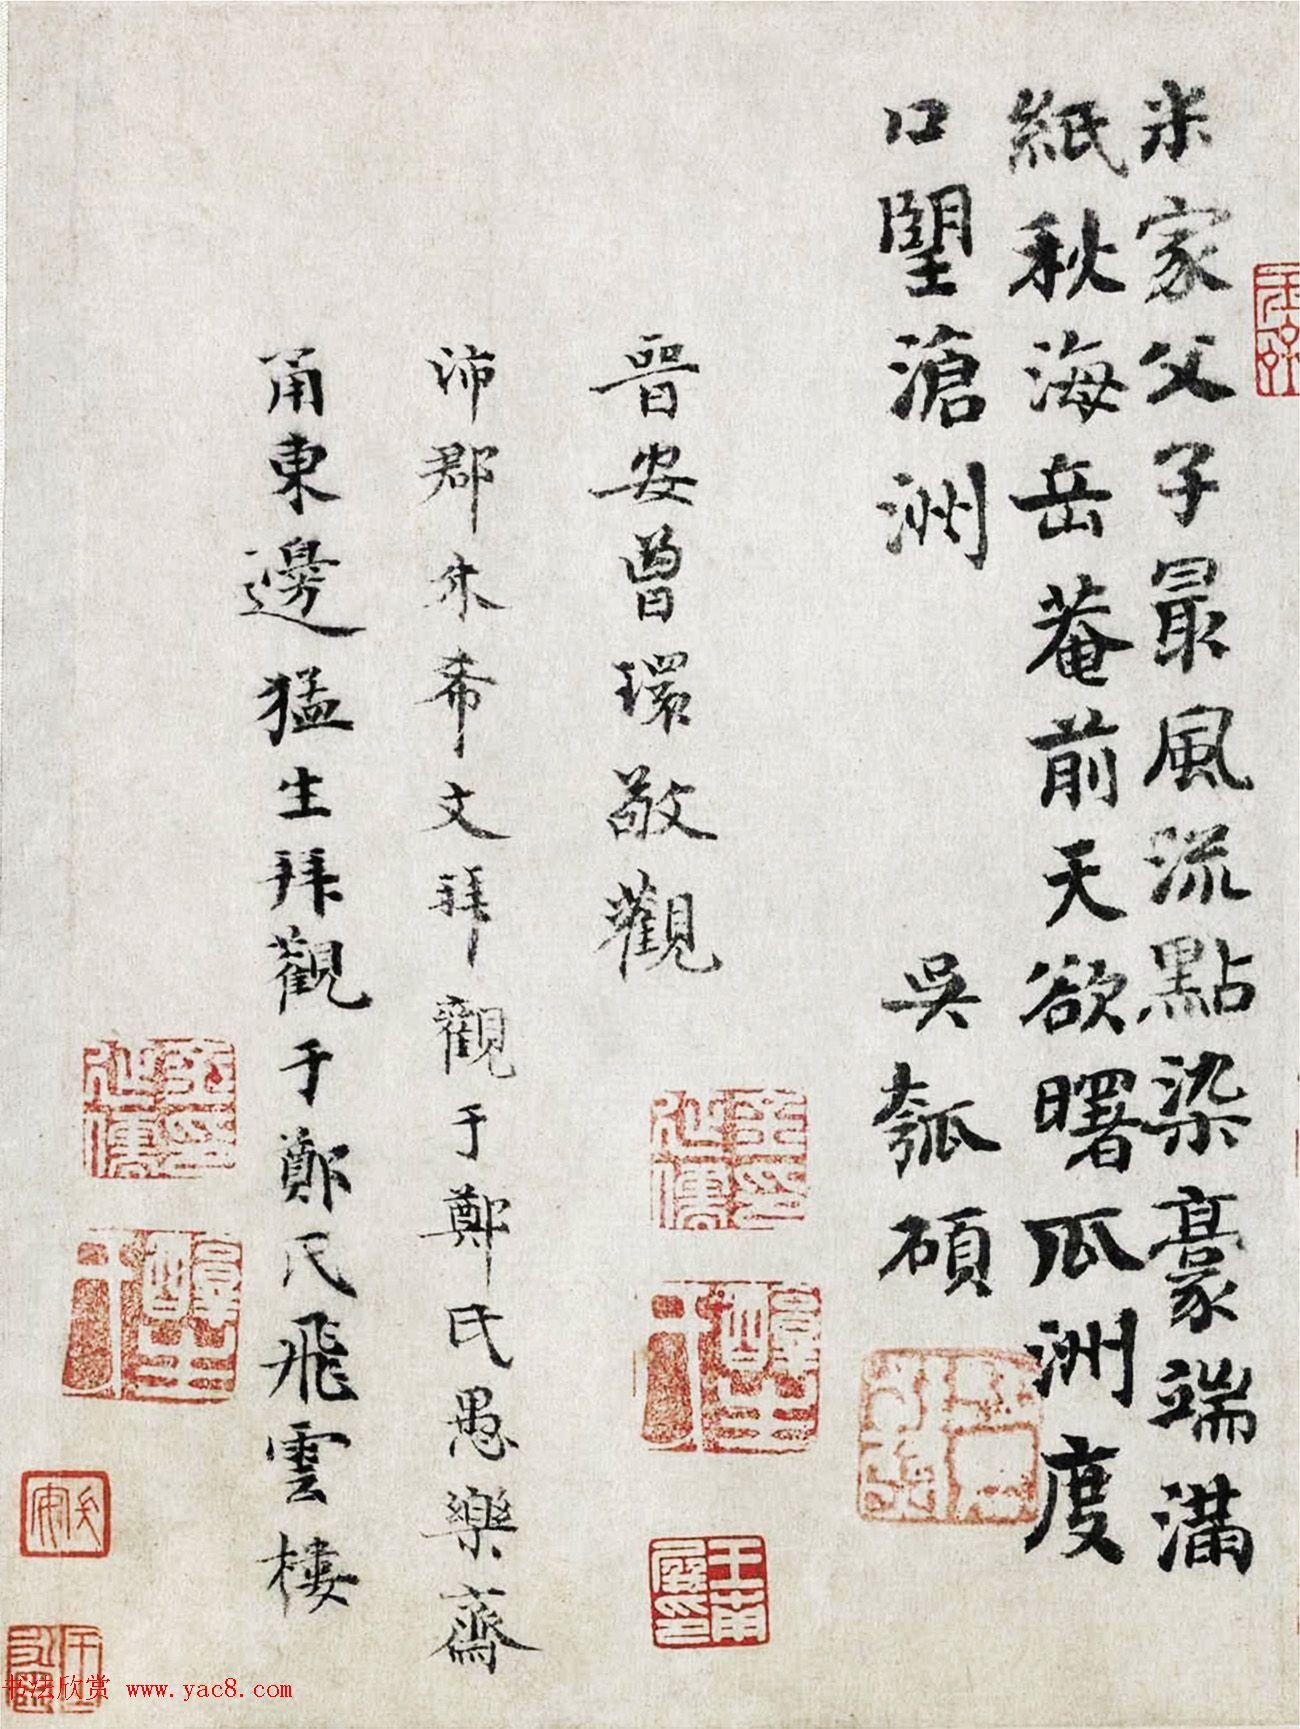 米家父子最風流點染豪端滿
紙秋海岳菴前天欲曙瓜洲度
口望滄洲 吳瓠碩
晉安曾環敬觀
沛郡朱希文拜觀于鄭氏愚樂齋
甬東邊猛生拜觀于鄭氏飛雲樓
王肅
书法欣赏 www.yac8.com